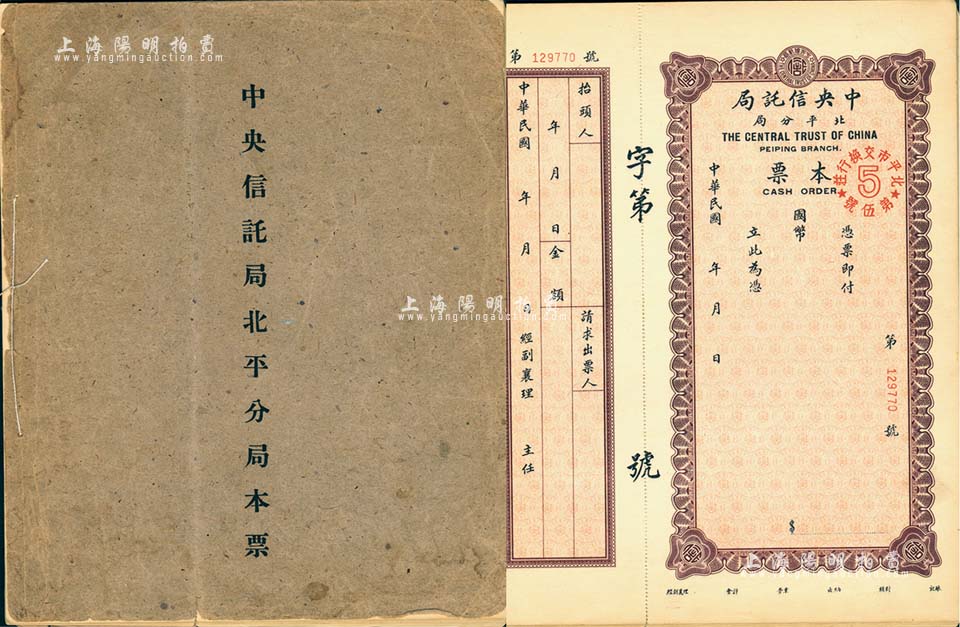 上海陽明拍賣
www.yangmingauction.com
中央信託局北平分局本票
第 129770 號
抬頭人
請求出票人
年 月 日
金額
中華民國 年 月 日
經副襄理
主任
字第 號
中央信託局
北平分局
THE CENTRAL TRUST OF CHINA
PEIPING BRANCH.
本票
CASH ORDER
北平市交換行莊
5
第伍號
憑票即付
國幣
立此為憑
中華民國 年 月 日
第 129770 號
$
會計
上海陽明拍賣
www.yangmingauction.com
上海陽明拍賣